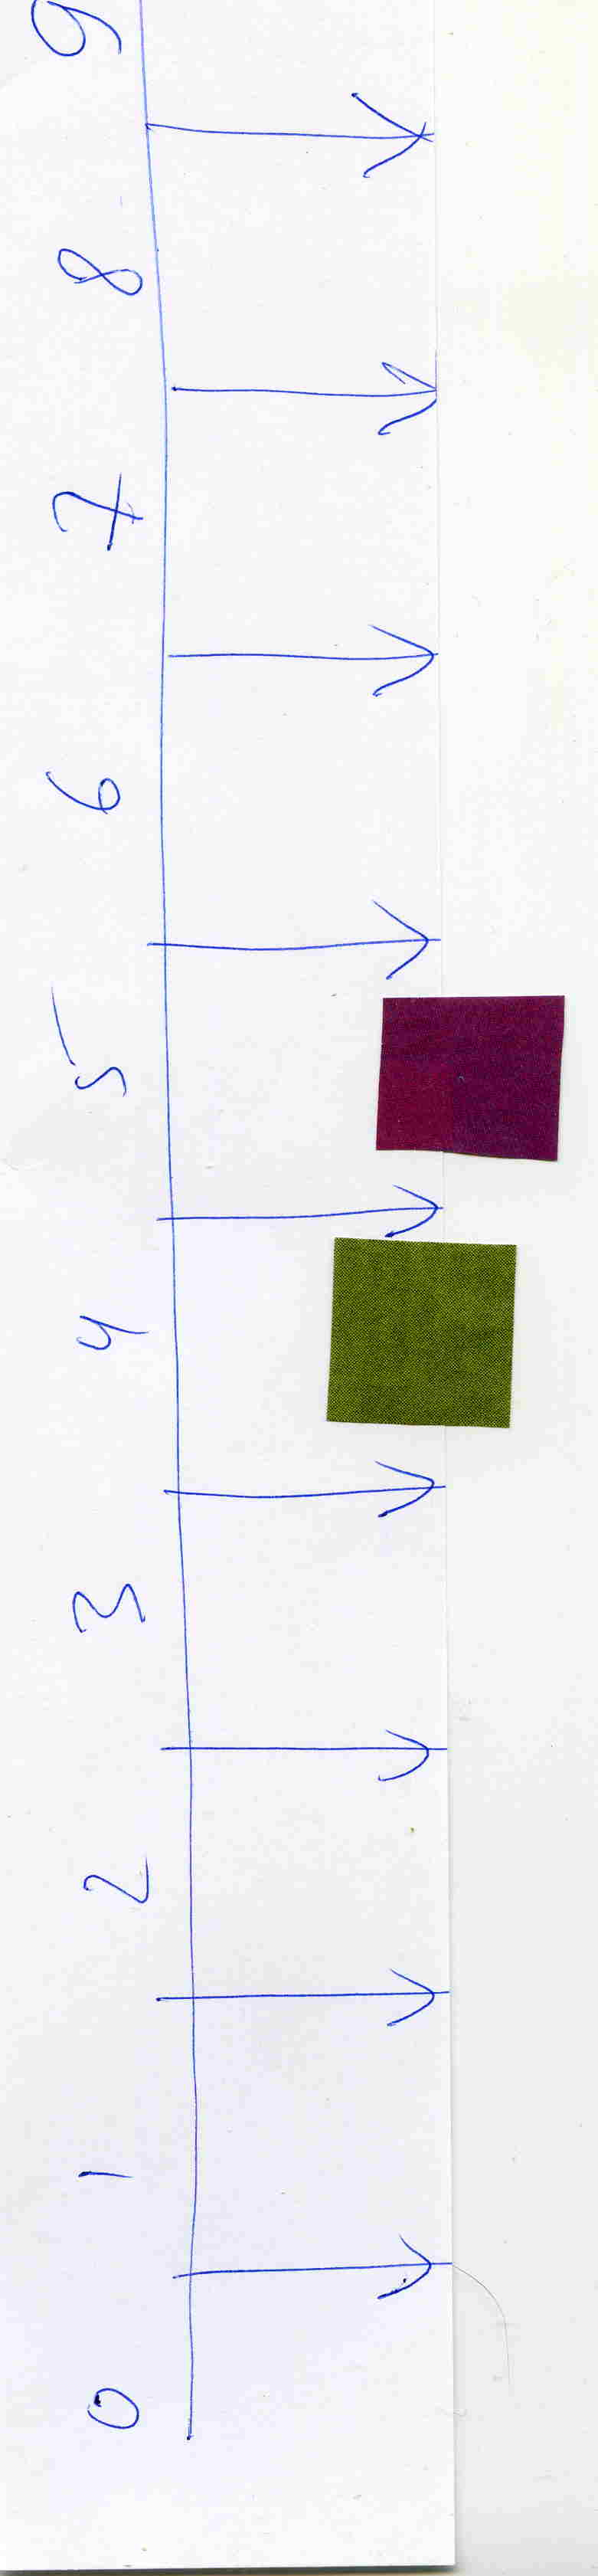 9
8
7
6
5
4
3
2
1
0